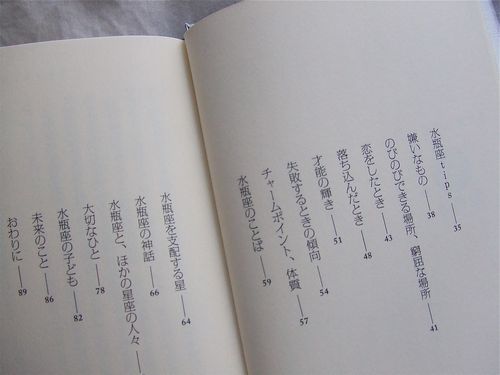 水瓶座tips——35
嫌いなもの——38
のびのびできる場所、窮屈な場所——41
恋をしたとき——43
落ち込んだとき——48
才能の輝き——51
失敗するときの傾向——54
チャームポイント、体質——57
水瓶座のことば——59
水瓶座を支配する星——64
水瓶座の神話——66
水瓶座と、ほかの星座の人々——
大切なひと——78
水瓶座の子ども——82
未来のこと——86
おわりに——89